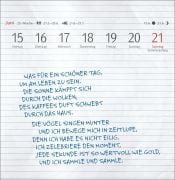 Juni
15 16 17 18 19 20 21
WAS FÜR EIN SCHÖNER TAG,
UM AM LEBEN ZU SEIN.
DIE SONNE KÄMPFT SICH
DURCH DIE WOLKEN,
DES KAFFEES DUFT SCHWEBT
DURCH DAS HAUS.
DIE VÖGEL SINGEN MUNTER
UND ICH BEWEGE MICH IN ZEITLUPE,
DENN ICH HABE ES NICHT EILIG.
ICH ZELEBRIERE DEN MOMENT,
JEDE SEKUNDE IST SO WERTVOLL WIE GOLD,
UND ICH SAMMLE UND SAMMLE.